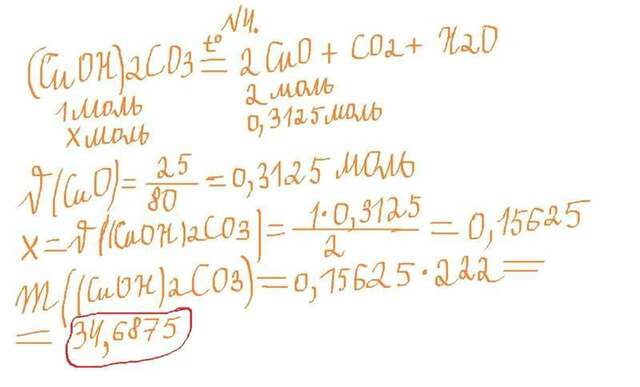 №4.
(CuOH)2CO3 t°= 2CuO + CO2 + H2O
1 моль 2 моль
X моль 0,3125 моль
ν(CuO) = 25/80 = 0,3125 моль
X = ν((CuOH)2CO3) = 1·0,3125/2 = 0,15625
m((CuOH)2CO3) = 0,15625·222 =
= 34,6875